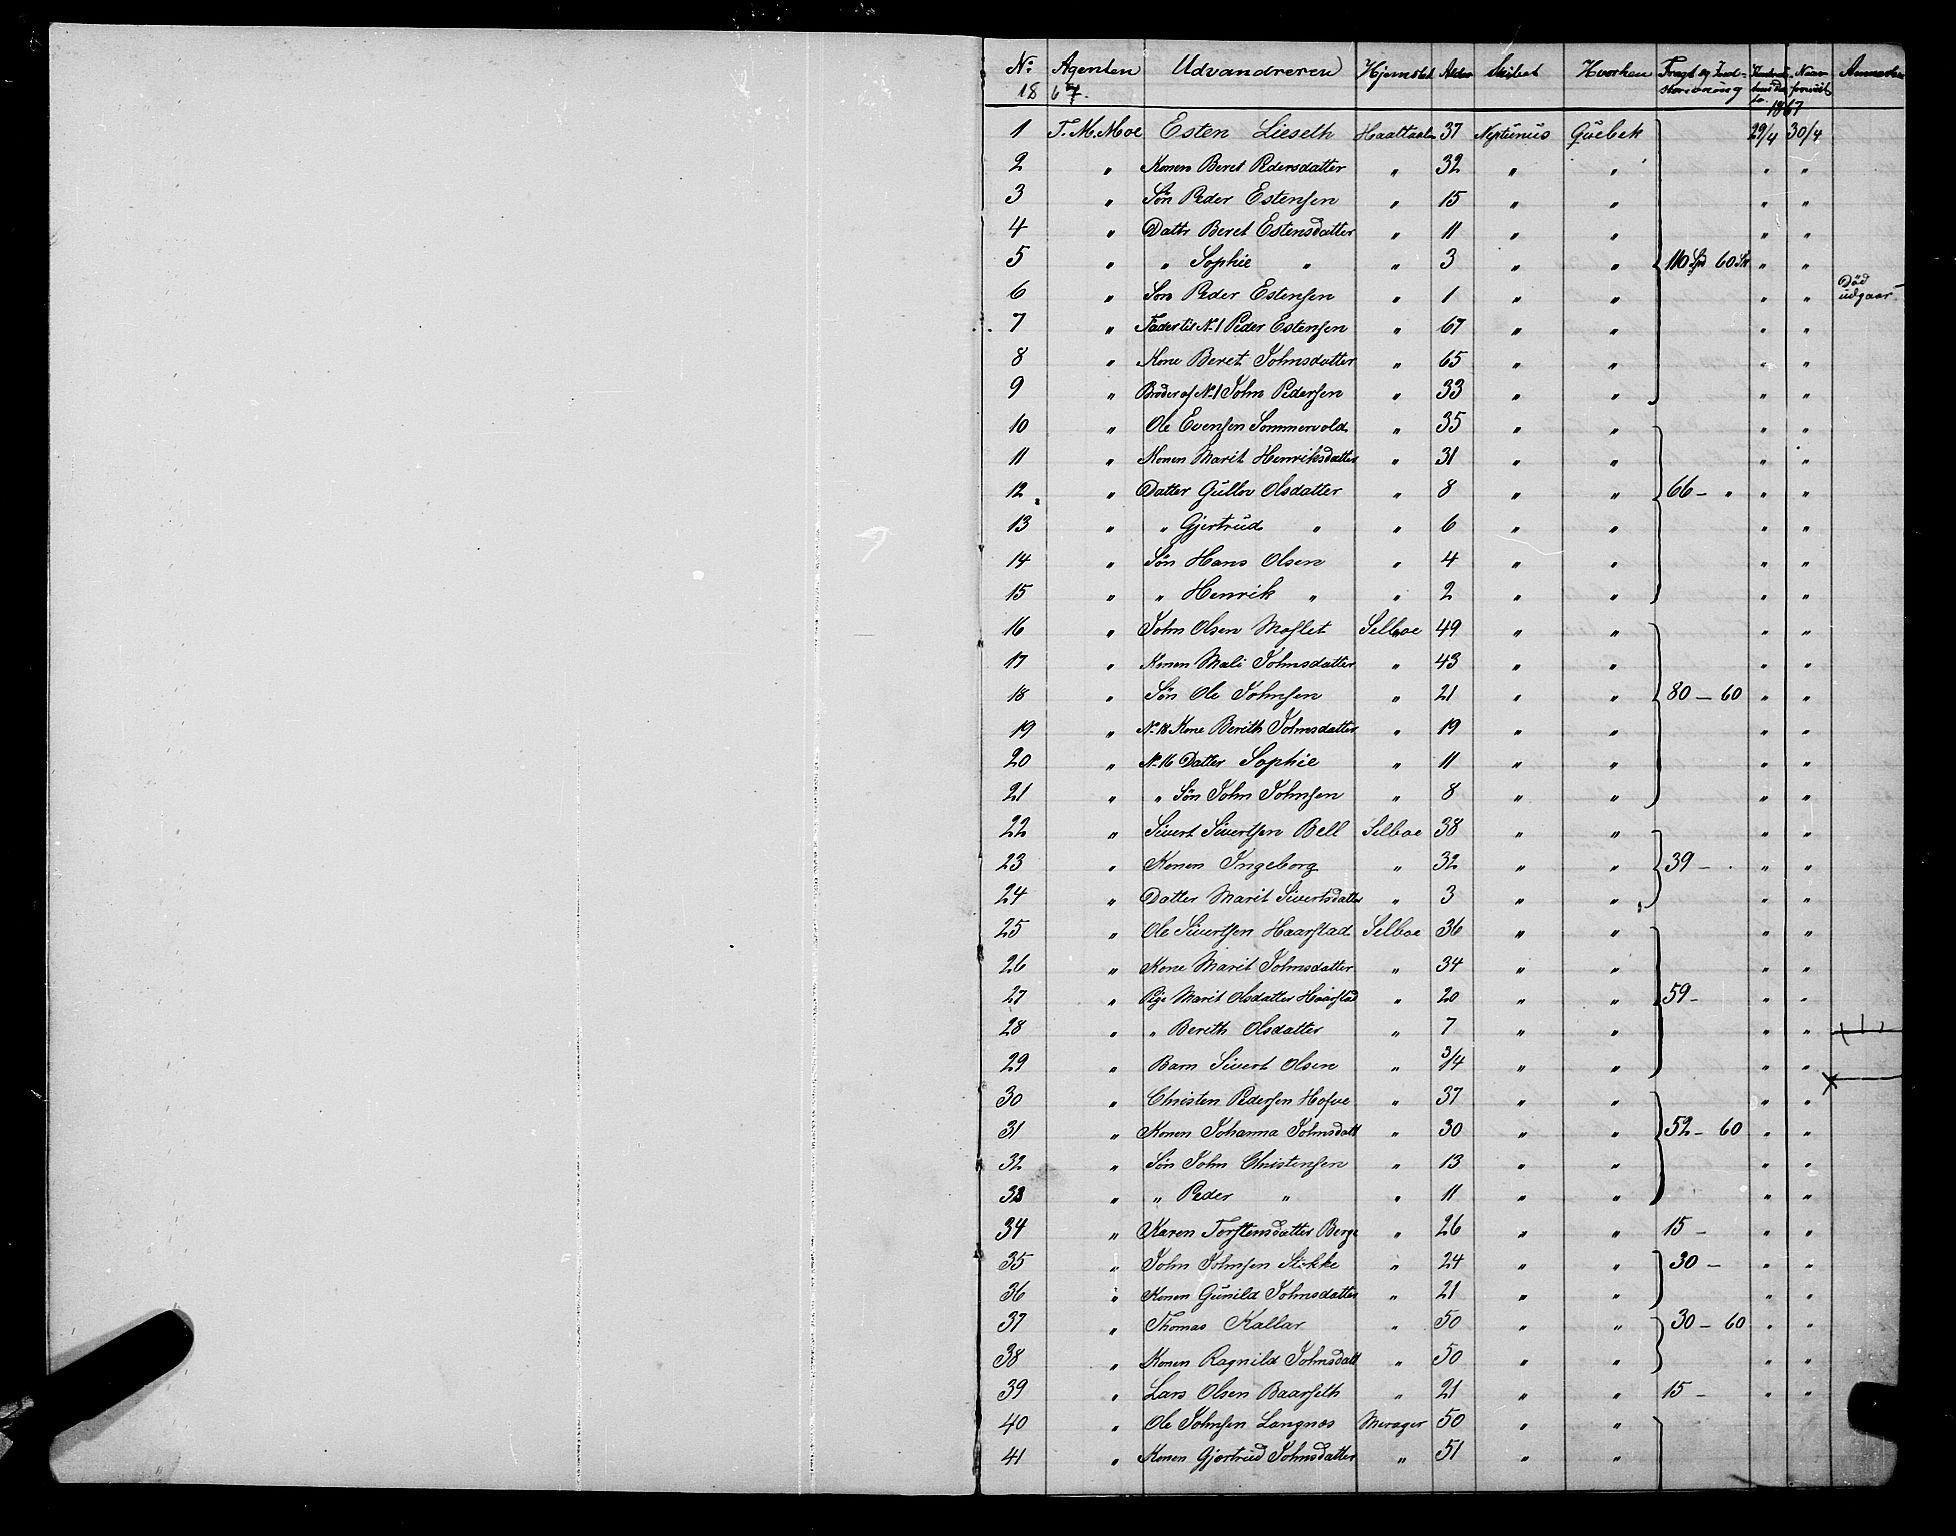 No. Agenten Udvandreren Hjemsted Alder Skibet Hvorhen Fragt og Ind- Naar Anmærkn
18 67. 1867
1 T. M. Moe Esten Lieseth Haaltaal 37 Neptunus Quebek 29/4 30/4
2 " Konen Beret Pedersdatter " 32 " " " "
3 " Søn Peder Estensen " 15 " " " "
4 " Dattr Beret Estensdatter " 11 " " " "
5 " " Sophie " " 3 " " 110 Spd 60 Sk " "
6 " Søn Peder Estensen " 1 " " " " Død udgaar
7 " Fader til No 1 Peder Estensen " 67 " " " "
8 " Kone Beret Johnsdatter " 65 " " " "
9 " Broder af No 1 John Pedersen " 33 " " " "
10 " Ole Evensen Sommervold " 35 " " " "
11 " Konen Marit Henriksdatter " 31 " " " "
12 " Datter Gullov Olsdatter " 8 " " 66 – " " "
13 " " Gjertrud " " 6 " " " "
14 " Søn Hans Olsen " 4 " " " "
15 " " Henrik " " 2 " " " "
16 " John Olsen Moslet Selboe 49 " " " "
17 " Konen Mali Johnsdatter " 43 " " " "
18 " Søn Ole Johnsen " 21 " " 80 – 60 " "
19 " No 18 Kone Berith Johnsdatter " 19 " " " "
20 " No 16 Datter Sophie " 11 " " " "
21 " " Søn John Johnsen " 8 " " " "
22 " Sivert Sivertsen Bell Selboe 38 " " " "
23 " Konen Ingeborg " 32 " " 39 – . " "
24 " Datter Marit Sivertsdatter " 3 " " " "
25 " Ole Sivertsen Haarstad Selboe 36 " " " "
26 " Kone Marit Johnsdatter " 34 " " " "
27 " Pige Marit Olsdatter Haarstad " 20 " " 59 – " "
28 " " Berith Olsdatter " 7 " " " "
29 " Barn Sivert Olsen " 3/4 " " " "
30 " Christen Pedersen Hofve " 37 " " " "
31 " Konen Johanna Johnsdatt " 30 " " 52 – 60 " "
32 " Søn John Christensen " 13 " " " "
33 " " Peder " " 11 " " " "
34 " Karen Torstensdatter Berge " 26 " " 15 – " "
35 " John Johnsen Stokke " 24 " " 30 – " "
36 " Konen Gunild Johnsdatter " 21 " " " "
37 " Thomas Kallar " 50 " " 30 – 60 " "
38 " Konen Ragnild Johnsdatt " 50 " " " "
39 " Lars Olsen Baarseth " 21 " " 15 – " "
40 " Ole Johnsen Langnos Merager 50 " "
41 " Konen Gjertrud Johnsdatter " 51 " "